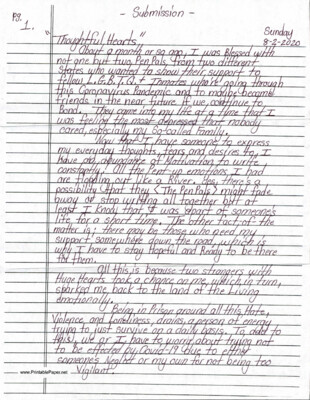 Pg.
1.
- Submission -
Sunday
8-2-2020
"Thoughtful Hearts"
About a month or so ago, I was Blessed with
not one but two Pen Pals, from two different
States who wanted to show their support to
fellow L.G.B.T.Q.+ Inmates who're going through
this Coronavirus Pandemic and to maybe become
friends in the near future if we continue to
Bond. They came into my life at a time that I
was feeling the most depressed that nobody
cared, especially my So-Called Family.
Now that I have someone to express
my everyday thoughts, fears and desires to, I
Have an abundance of Motivation to write
constantly! All the Pent up emotions I had
are flooding out like a River. Yes, there's a
possibility that they (The Pen Pals) might fade
away or stop writing all together but at
least I know that I was apart of someone's
life, for a short time. The other fact of the
matter is; there may be those who need my
support somewhere down the road, which is
why I have to stay Hopeful and Ready to be there
for them.
All this is because two strangers with
Huge Hearts took a chance on me, which in turn,
sparked me back to the land of the Living
emotionally.
Being in Prison around all this Hate,
Violence, and Loneliness, drains a person of energy
trying to just survive on a daily basis. To add to
this, we or I have to worry about trying not
to be effected by Covid-19 due to either
someones Neglect or my own for not being too
Vigilant.
www.PrintablePaper.net